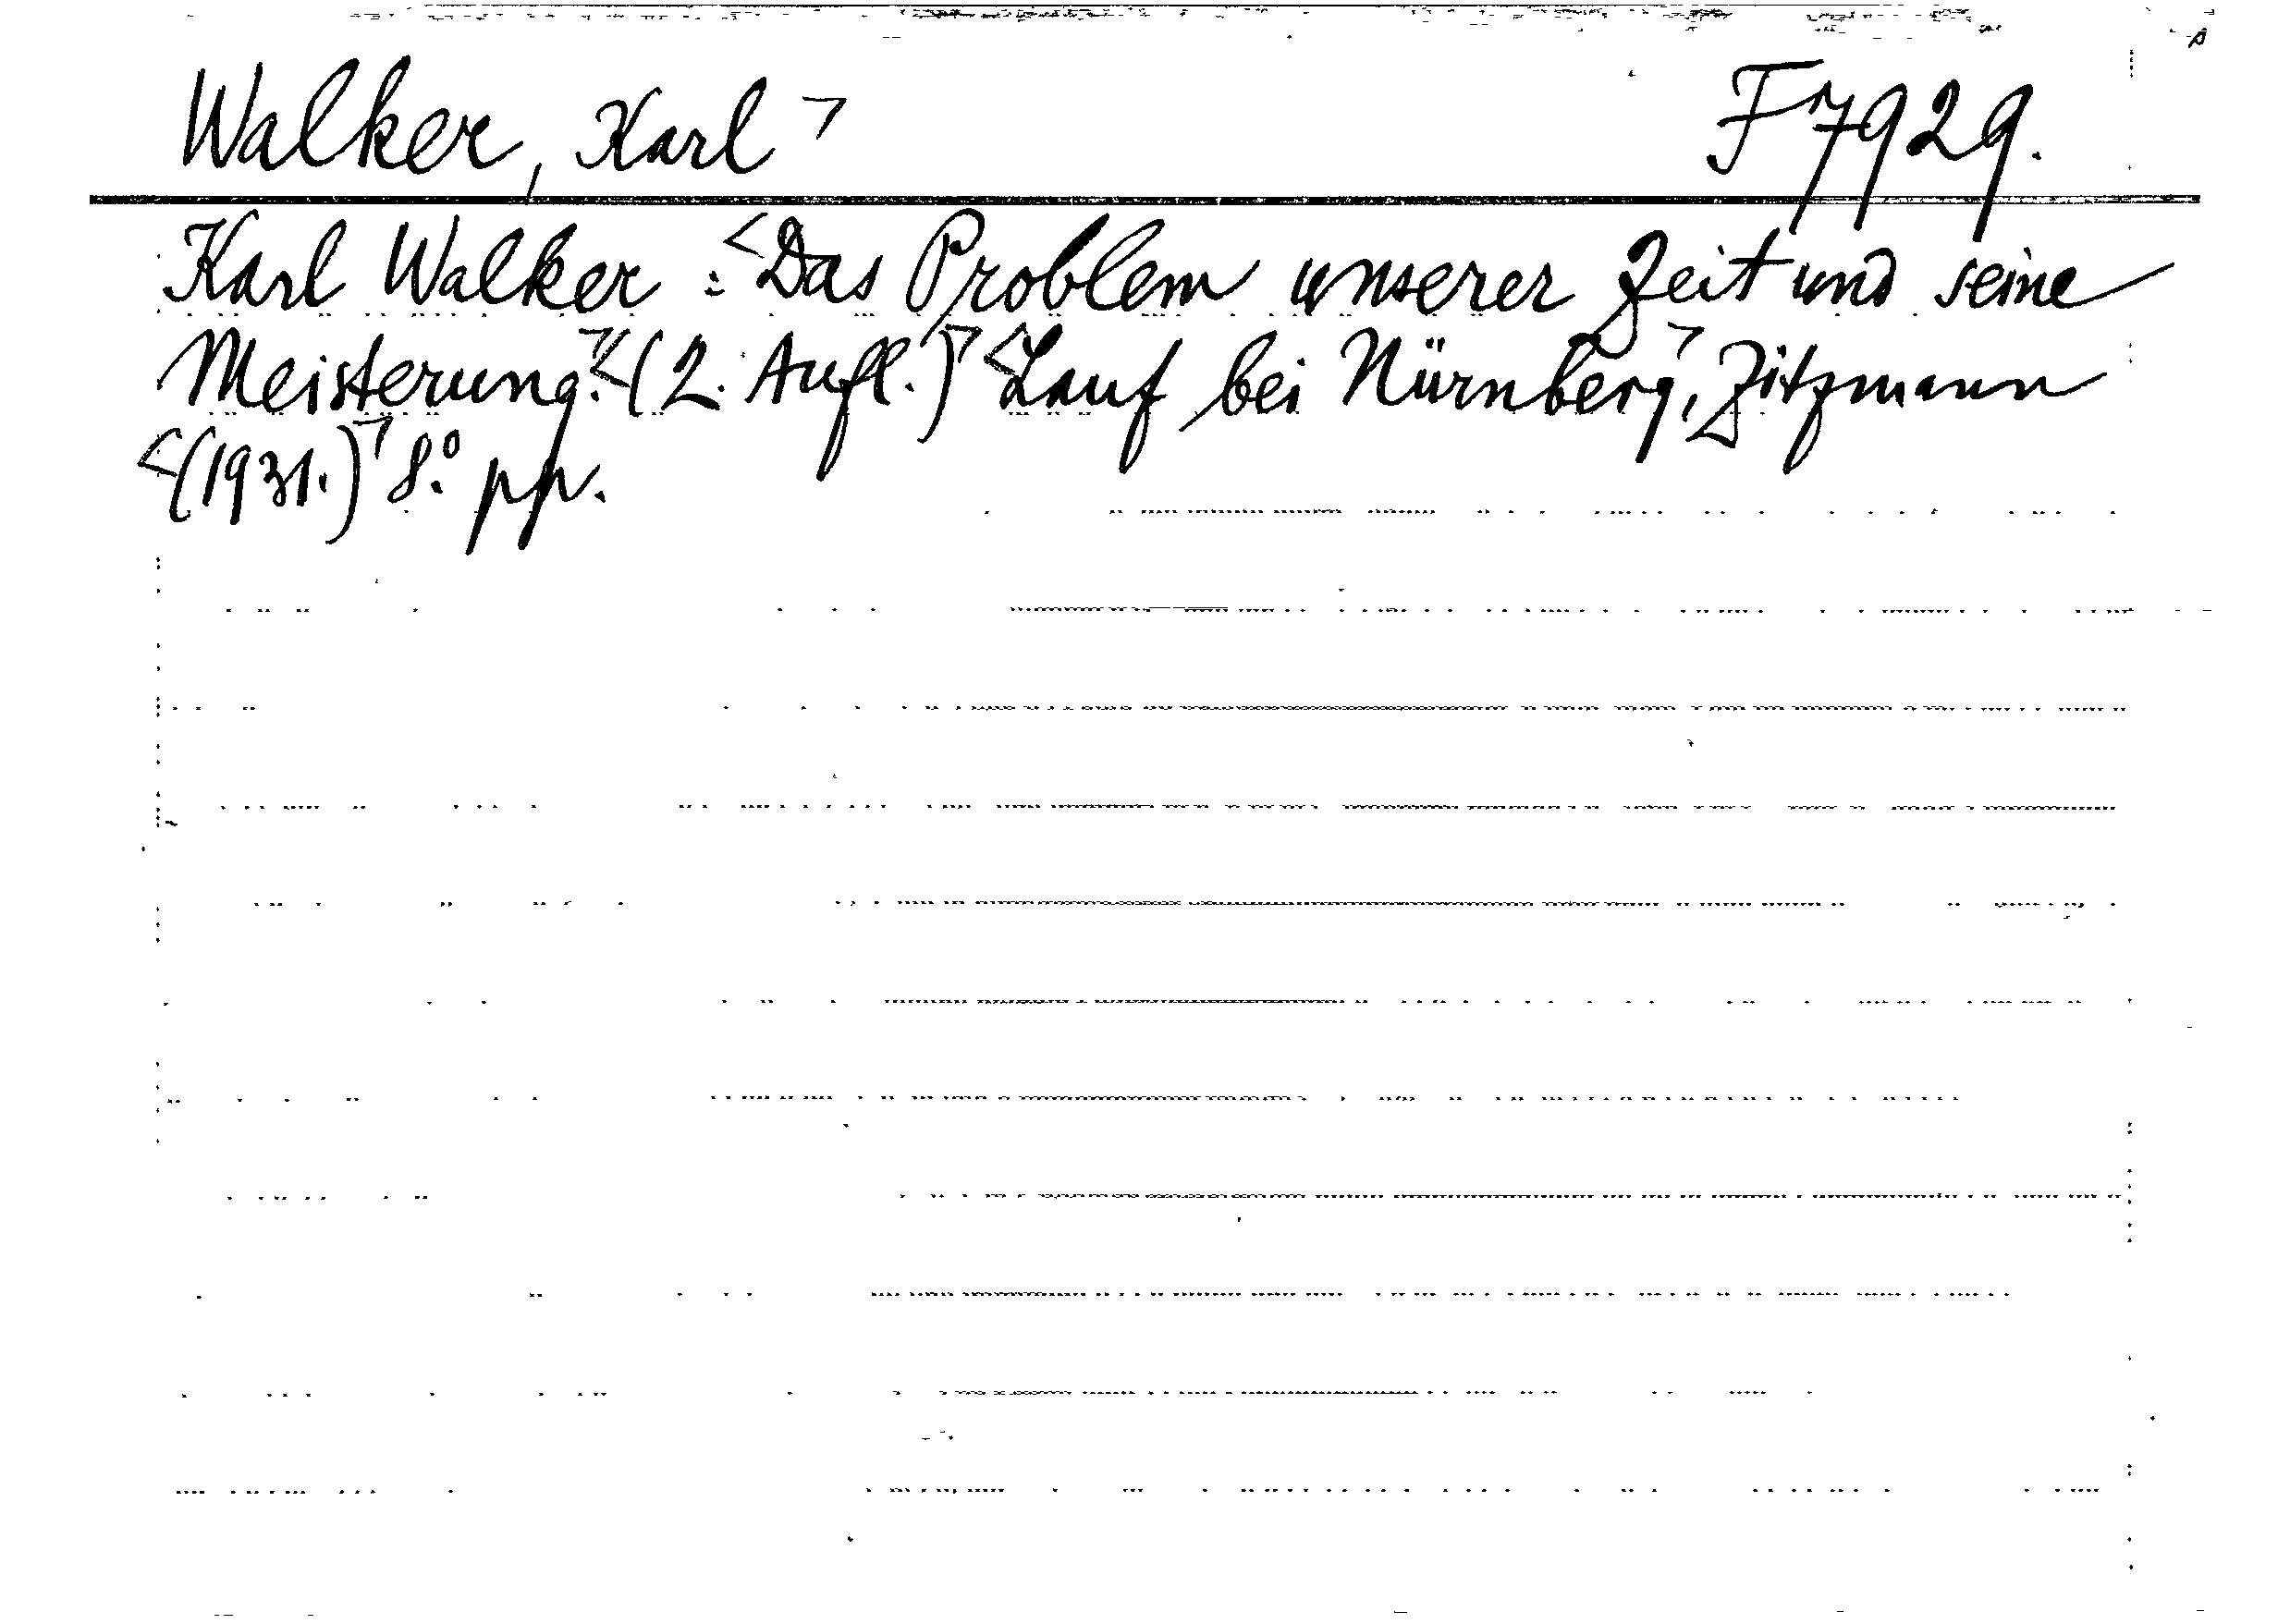 Walker, Karl ⌝ F 7929.
Karl Walker : <Das Problem unserer Zeit und seine
Meisterung.⌝ <(2. Aufl.)⌝ <Lauf bei Nürnberg⌝, Zitzmann
<(1931.)⌝ 8.° pp.